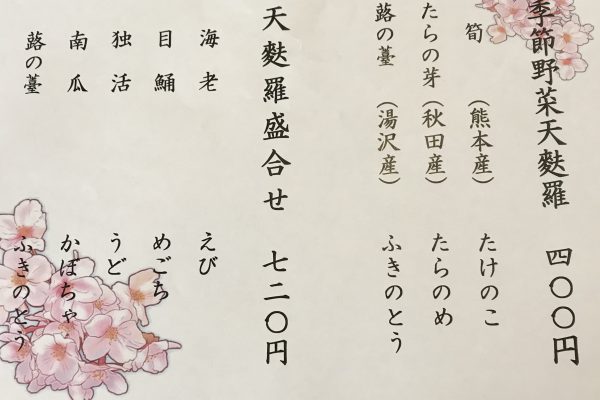 季節野菜天麩羅 四〇〇円
筍 (熊本産) たけのこ
たらの芽 (秋田産) たらのめ
蕗の薹 (湯沢産) ふきのとう
天麩羅盛合せ 七二〇円
海老 えび
目鯒 めごち
独活 うど
南瓜 かぼちゃ
蕗の薹 ふきのとう